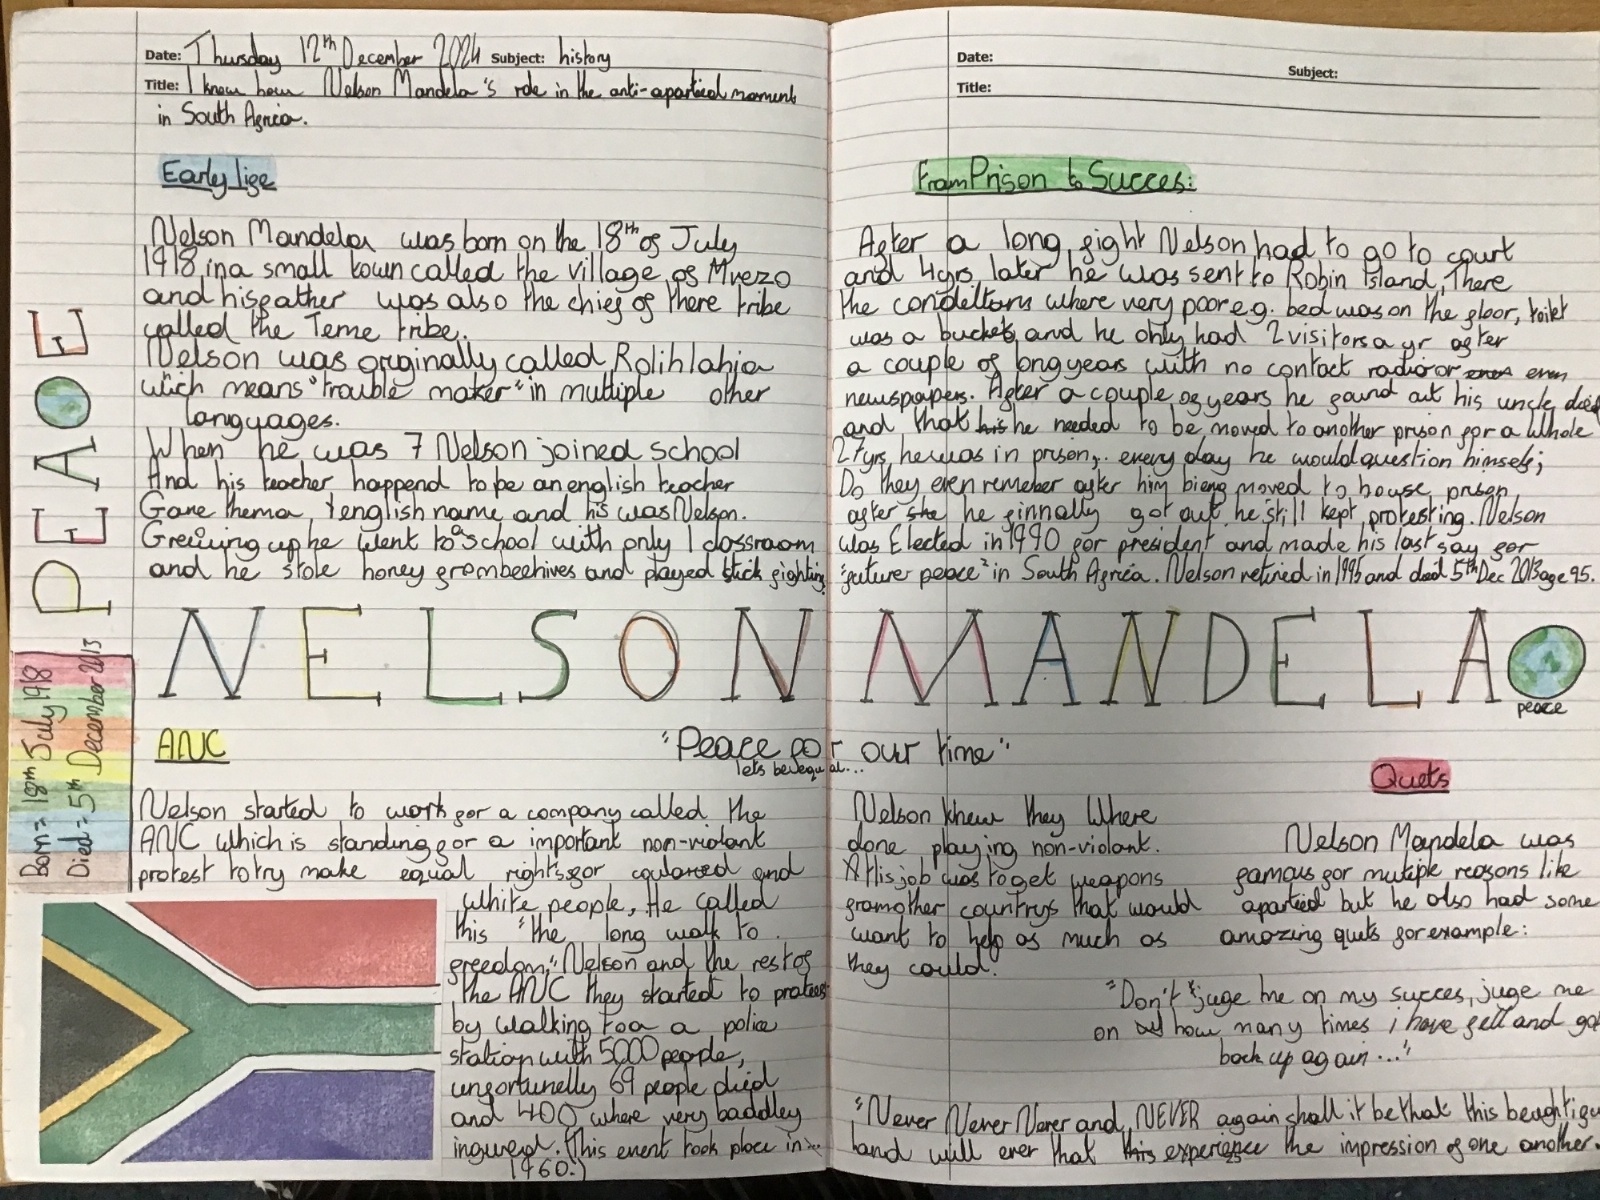 Date: Thursday 12th December 2024 Subject: history
Title: I know how Nelson Mandela's role in the anti-apartied moment
in South Africa.
Early life
Nelson Mandela was born on the 18th of July
1918, in a small town called the village of Mvezo
and his father was also the chief of there tribe
called the Teme tribe.
Nelson was orginally called Rolihlahja
wich means "trouble maker" in multiple other
languages.
When he was 7 Nelson joined school
And his teacher happend to be an english teacher
Gave them a english name and his was Nelson.
Growing up he went to a school with only 1 classroom
and he stole honey from beehives and played stick fighting.
PEACE
Born = 18th July 1918
Died = 5th December 2013
NELSON MANDELA
peace
"Peace for our time"
lets be equal...
ANC
Nelson started to work for a company called the
ANC which is standing for a important non-violant
protest to try make equal rights for and
white people, He called
this "the long walk to
freedom." Nelson and the rest of
the ANC they started to protest
by walking too a police
station with 5000 people,
unfortunelly 69 people died
and 400 where very baddley
ingured. (This event took place in...
1960.)
Date: Subject:
Title:
From Prison to Succes:
After a long fight Nelson had to go to court
and 4yrs later he was sent to Robin Island, There
the where very poor e.g. bed was on the floor, toilet
was a bucket, and he only had 2 visitors a yr after
a couple of long years with no contact radio or even
newspapers. After a couple of years he found out his uncle died
and that he needed to be moved to another prison for a whole
27yrs he was in prison, every day he would question himself;
Do they even remeber after him bieng moved to house prison
after he finnally got out he still kept protesting. Nelson
was Elected in 1990 for president and made his last say for
"futurer peace" in South Africa. Nelson retired in 1995 and died 5th Dec 2013 age 95.
Nelson knew they Where
done playing non-violant.
His job was to get weapons
from other countrys that would
want to help as much as
they could.
Quets
Nelson Mandela was
famous for mutiple reasons like
apartied but he also had some
amazing quets for example:
"Don't juge me on my succes, juge me
on how many times i have fell and got
back up again..."
"Never Never Never and NEVER again shall it be that this
land will ever that this experience the impression of one another.